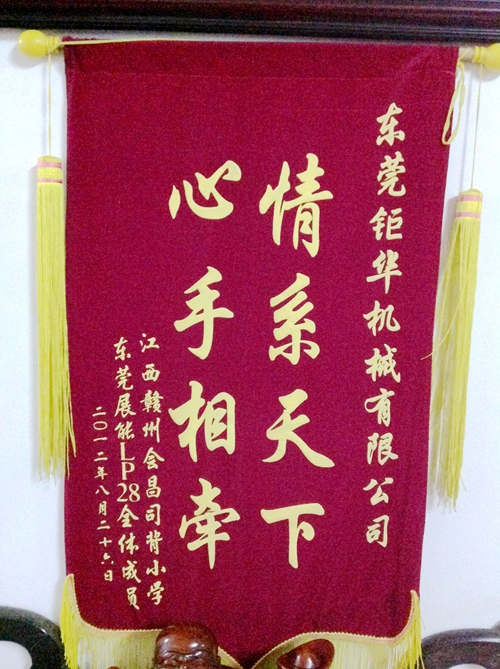 东莞钜华机械有限公司
情系天下
心手相牵
江西赣州会昌司背小学
东莞展能LP28全体成员
二〇一二年八月二十六日